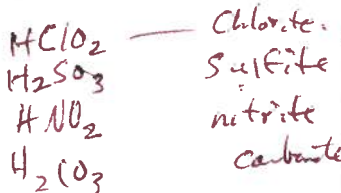 HClO₂ — Chlorite.
H₂SO₃ Sulfite
HNO₂ nitrite
H₂CO₃ Carbonate